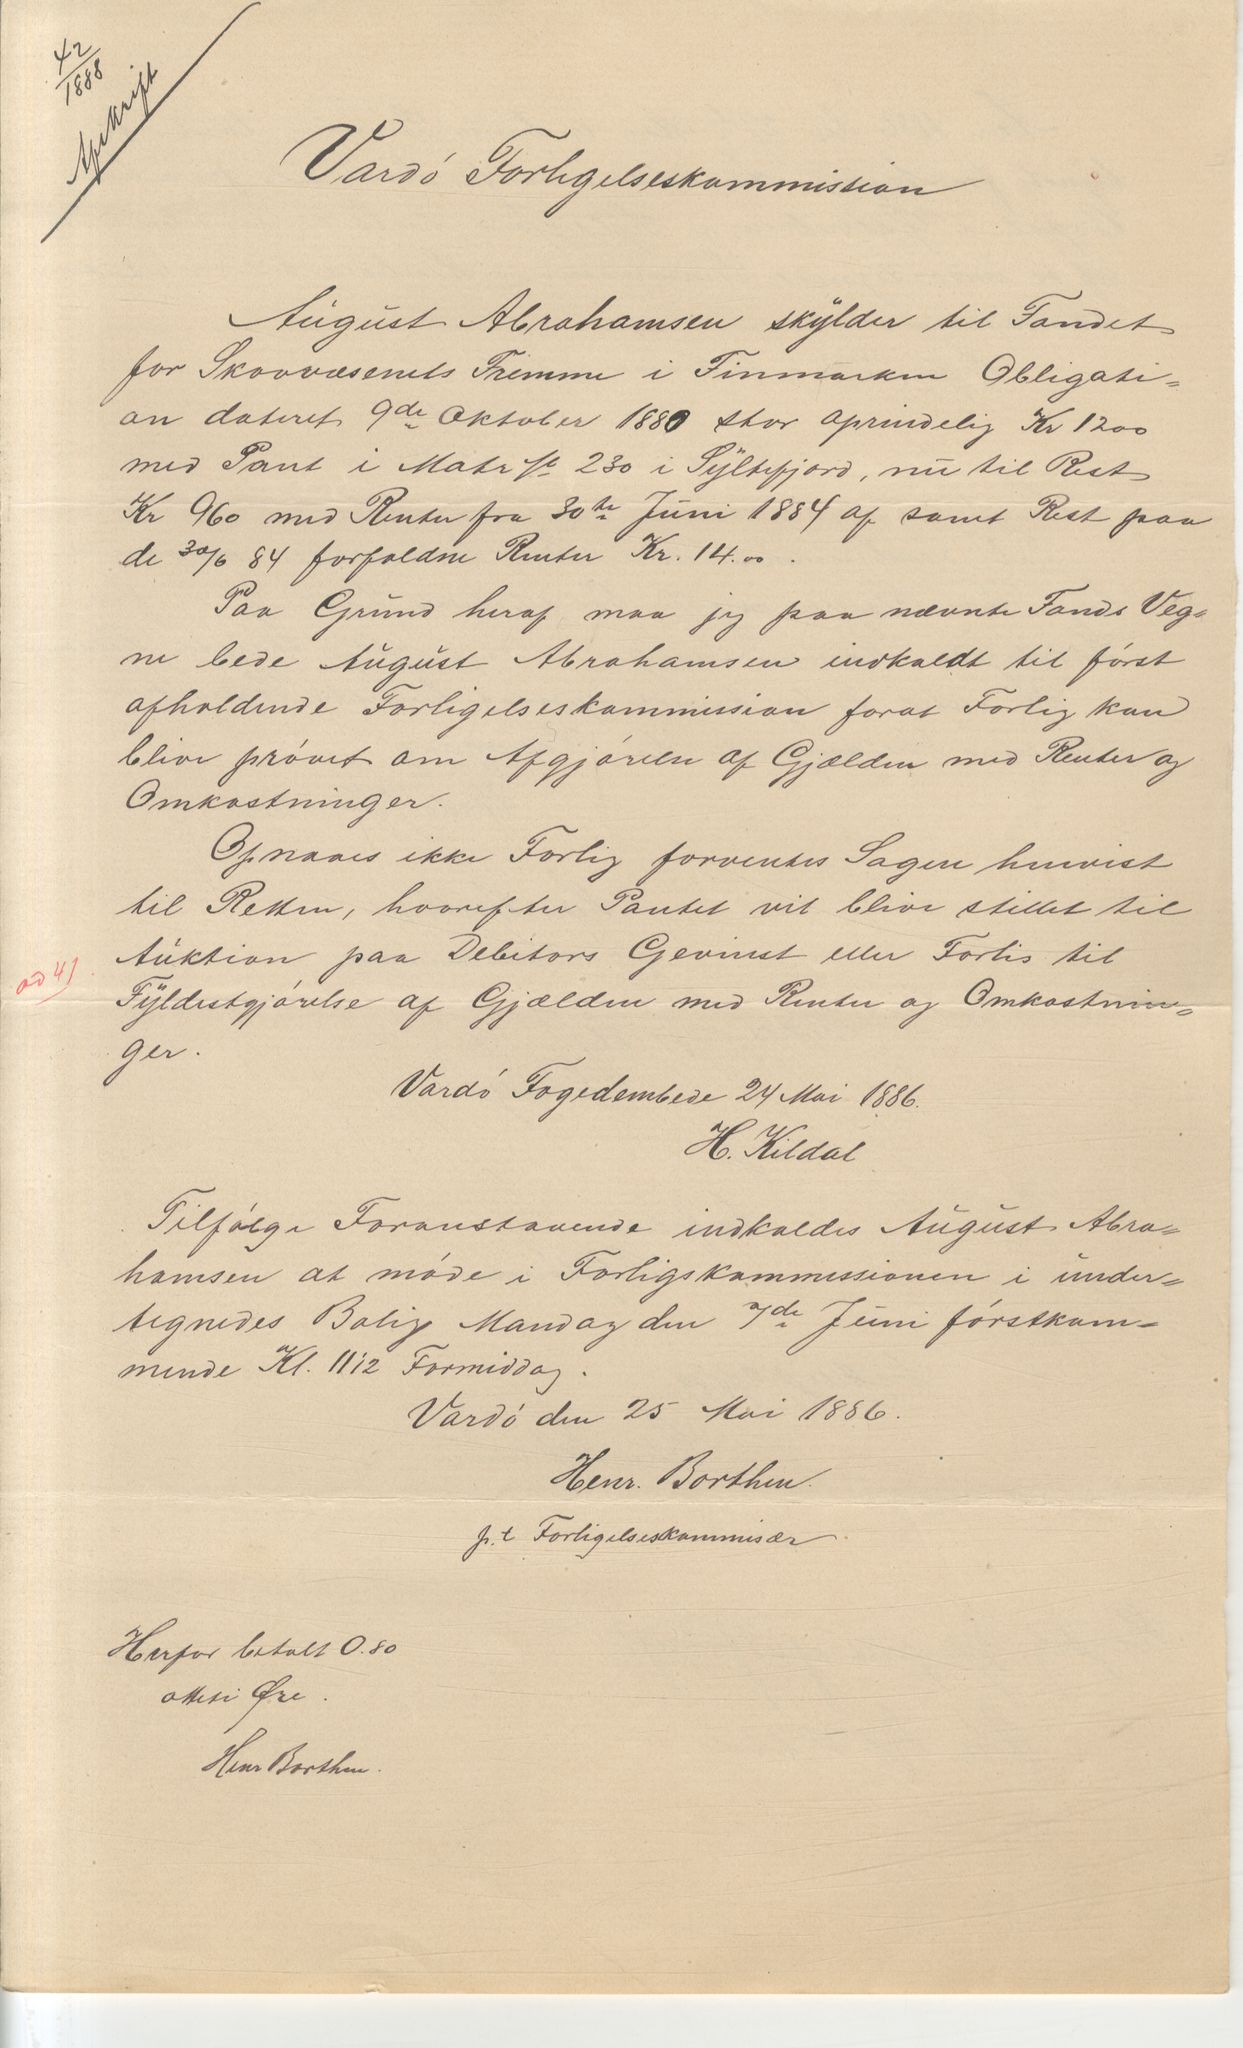 42/1888
Afskrift
Vardó Forligelseskommission
August Abrahamsen skylder til Fondet
for Skovvæsenets Fremme i Finmarken Obligati=
on dateret 9de Oktober 1880 stor oprindelig Kr 1200
med Pant i Matr № 230 i Syltefjord, nu til Rest
Kr 960 med Renter fra 30te Juni 1884 af samt Rest paa
de 30/6 84 forfaldne Renter Kr. 14.00.
Paa Grund heraf maa jeg paa nævnte Fonds Veg=
ne bede August Abrahamsen indkaldt til først
afholdende Forligelseskommission forat Forlig kan
blive prøvet om Afgjørelse af Gjælden med Renter og
Omkostninger.
Opnaaes ikke Forlig forventes Sagen henvist
til Retten, hvorefter Pantet vil blive stillet til
Auktion paa Debitors Gevinst eller Forlis til
ad 41
Fyldestgjørelse af Gjælden med Renter og Omkostnin=
ger.
Vardø Fogedembede 24 Mai 1886.
H. Kildal
Tilfølge Foranstaaende indkaldes August Abra=
hamsen at møde i Forligskommissionen i under=
tegnedes Bolig Mandag den 7de Juni førstkom=
mende Kl. 11 1/2 Formiddag.
Vardø den 25 Mai 1886.
Henr. Borthen.
p.t Forligelseskommisær
Herfor betalt 0.80
otteti Øre.
Henr Borthen.